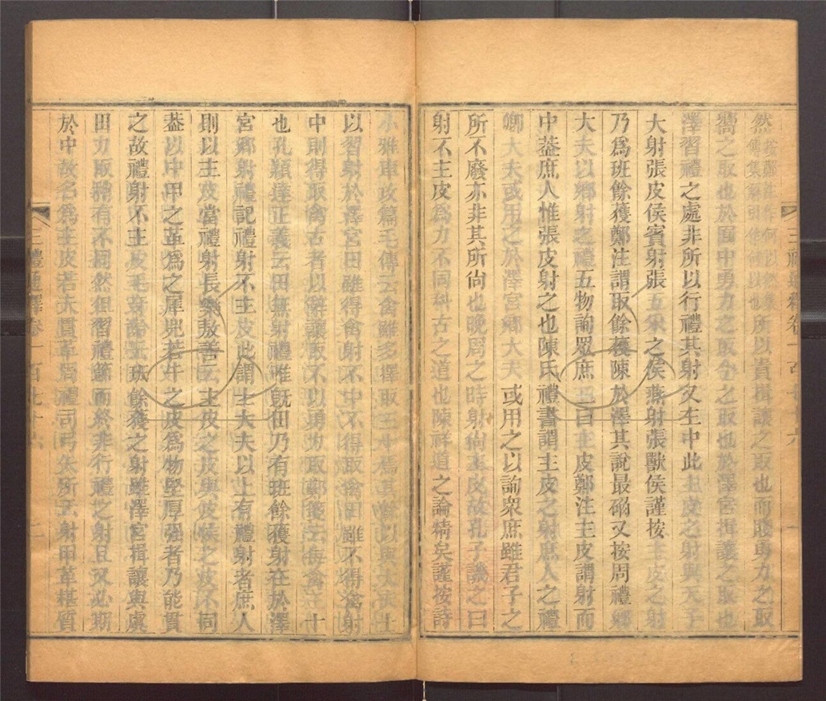 三禮通釋卷一百七十六
然
所以貴揖讓之取也而賤勇力之取
嚮之取也於囿中勇力之取今之取也於澤宮揖讓之取也
澤習禮之處非所以行禮其射又主中此主皮之射與天子
大射張皮侯賓射張五采之侯燕射張獸侯謹按主皮之射
乃爲班餘獲鄭注謂取餘獲陳於澤其說最碻又按周禮鄉
大夫以鄉射之禮五物詢眾庶三曰主皮鄭注主皮謂射而
中葢庶人惟張皮射之也陳氏禮書謂主皮之射庶人之禮
卿大夫或用之於澤宮鄉大夫或用之以詢衆庶雖君子之
所不廢亦非其所尙也晚周之時射尙主皮故孔子譏之曰
射不主皮爲力不同科古之道也陳祥道之論精矣謹按詩
小雅車攻篇毛傳云禽雖多擇取三十焉其餘以與大夫士
以習射於澤宮田雖得禽射不中不得取禽田雖不得禽射
中則得取禽古者以辭讓取不以勇力取鄭箋云每禽三十
也孔穎達正義云田無射禮唯旣田乃有班餘獲射在於澤
宮鄉射禮記禮射不主皮此謂士大夫以上有體射者庶人
則以主皮當禮射長樂敖善云主皮之皮與皮侯之皮不同
葢以中甲之革爲之犀兕若牛之皮爲物堅厚强者乃能貫
之故禮射不主皮毛奇齡云班餘獲之射雖澤宮揖讓與虞
田力取稍有不同然但習禮節而終非行禮之射且又必期
於中故名爲主皮若夫貫革周禮司弓矢所云射甲革椹質
三禮通釋卷一百七十六
二